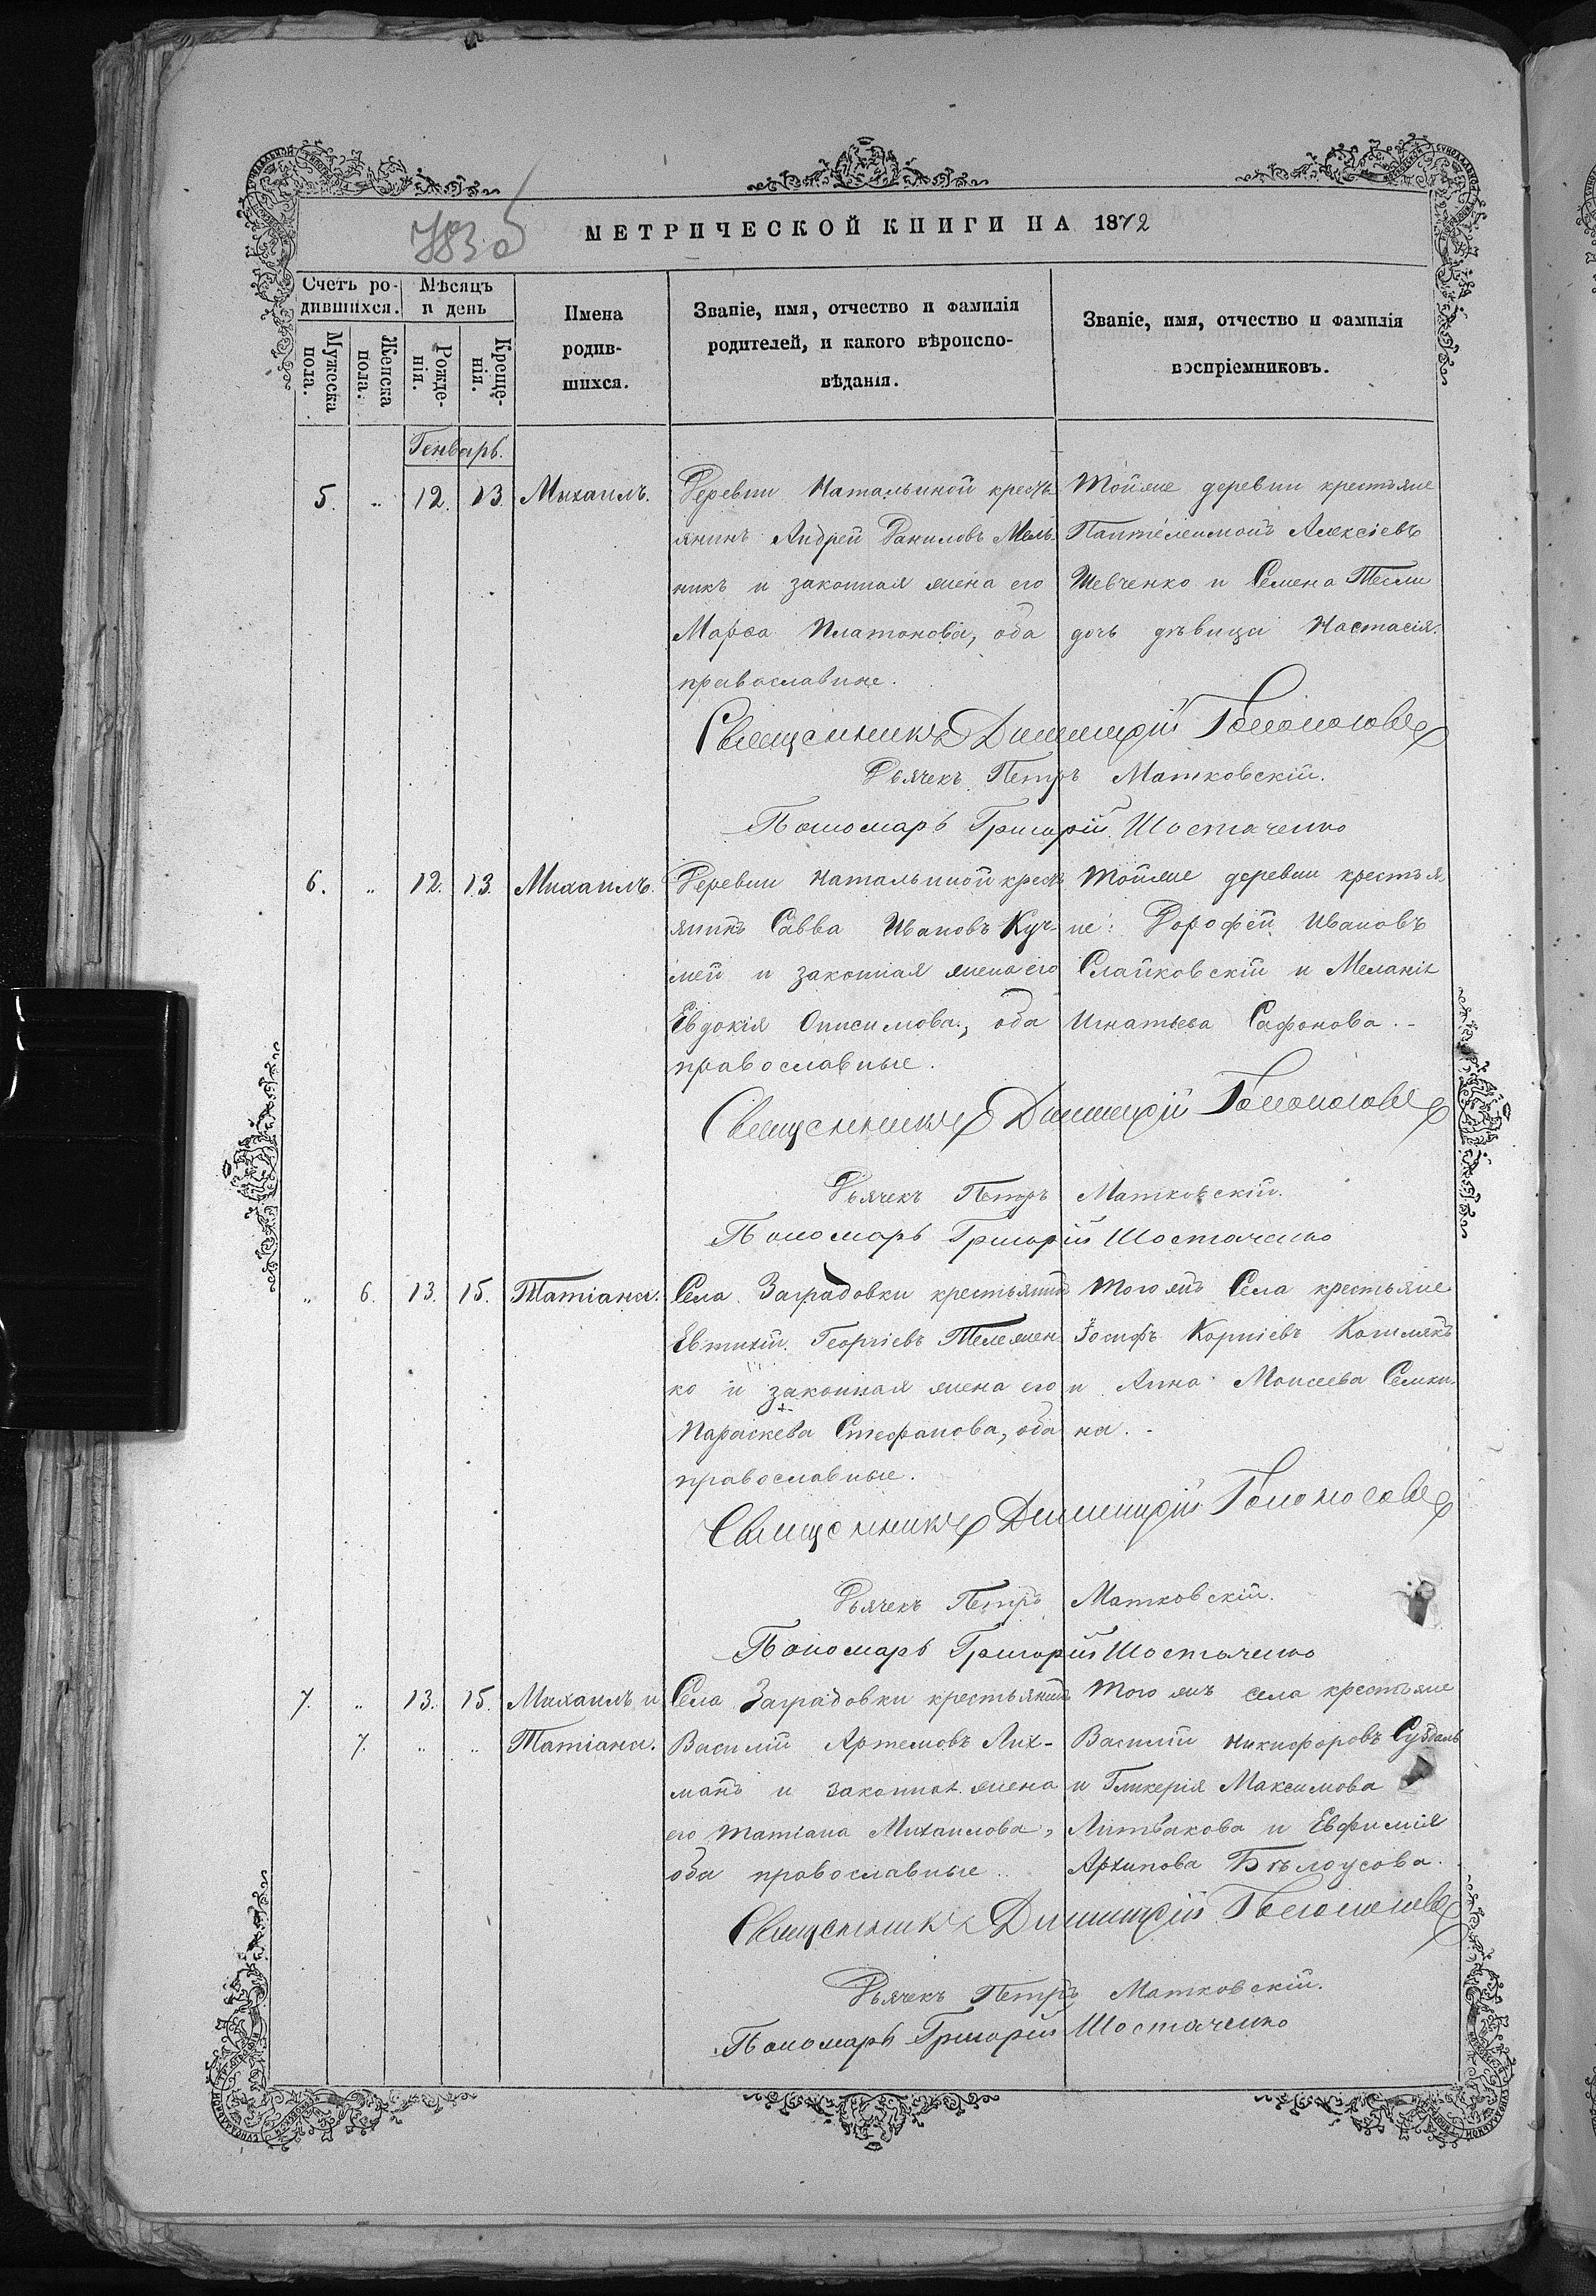 783 об
МЕТРИЧЕСКОЙ КНИГИ НА 1872
Счетъ ро-
дившихся.
Мѣсяцъ
и день
Имена
родив-
шихся.
Званіе, имя, отчество и фамилія
родителей, и какого вѣроиспо-
вѣданія.
Званіе, имя, отчество и фамилія
воспріемниковъ.
Мужеска
пола.
Женска
пола.
Рожде-
нія.
Креще-
нія.
Генварь.
5. „ 12. 13. Михаилъ.
Деревни Натальиной кресть
янинъ Андрей Даниловъ Мель-
никъ и законная жена его
Марѳа Платонова, оба
православные.
Тойже деревни крестьяне
Пантелеимонъ Алексіевъ
Шевченко и Семена Тесли
дочь дѣвица Настасія.
Священникъ Димитрій
Дьячекъ Петръ Матковскій.
Пономарь Григорій Шостаченко
6. „ 12. 13. Михаилъ.
Деревни Натальиной кресть
янинъ Савва Ивановъ Куч-
мей и законная жена его
Евдокія Онисимова, оба
православные.
Тойже деревни крестья-
не: Дорофей Ивановъ
Слайковскій и Меланія
Игнатьева Сафонова.-
Священникъ Димитрій
Дьячекъ Петръ Матковскій.
Пономарь Григорій Шостаченко
„ 6. 13. 15. Татіана.
Села Заградовки крестьянинъ
Евтихій Георгіевъ Тележен
ко и законная жена его
Параскева Стефанова, оба
православные.
Того жъ Села крестьяне
Іосифъ Корніевъ Кошмякъ
и Анна Моисеева Семки-
на.-
Священникъ Димитрій
Дьячекъ Петръ Матковскій.
Пономарь Григорій Шостаченко
7. „ 13. 15. Михаилъ и
7. „ „ Татіана.
Села Заградовки крестьянинъ
Василій Артемовъ Лих-
манъ и законная жена
его Татіана Михаилова,
оба православные.
Того жъ села крестьяне
Василій Никифоровъ Суздаль
и Гликерія Максимова
Литвакова и Евфимія
Архипова Бѣлоусова.
Священникъ Димитрій
Дьячекъ Петръ Матковскій.
Пономарь Григорій Шостаченко